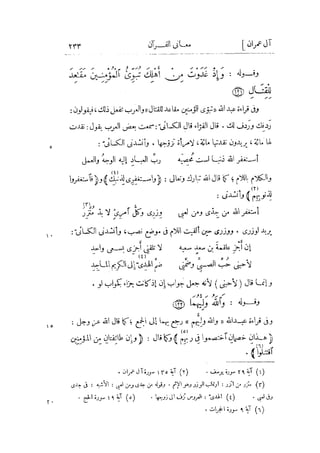 آل عمران ] معانى القــرآن ٢٣٣
وقــوله : وَإِذْ غَدَوْتَ مِنْ أَهْلِكَ تُبَوِّئُ الْمُؤْمِنِينَ مَقَاعِدَ
لِلْقِتَالِ
وفى قراءة عبد الله « تبوّى للمؤمنين مقاعد للقتال » والعرب تفعل ذلك ، فيقولون :
ردفك وردف لك . قال الفراء قال الكسائىّ : سمعت بعض العرب يقول : نقدت
لها مائة ، يريدون نقدتها مائة ، لامرأة تزوّجها . وأنشدنى الكسائىّ :
أستغفر الله ذنبا لست محصيه ربّ العباد إليه الوجه والعمل
والكلام باللام ؛ كما قال الله تبارك وتعالى : ﴿ واستغفرى لذنبك ﴾ و ﴿ فاستغفروا
لذنوبهم ﴾ وأنشدنى :
أستغفر الله من جِدّى ومن لعبى وِزرى وكلّ امرئ لا بد متّزر
يريد لوزرى . ووزرى حين ألقيت اللام فى موضع نصب ، وأنشدنى الكسائىّ :
إن أجزِ علقمة بن سعدٍ سعيه لا تلقنى أجزى بسعى واحد
لأحبنى حُبَّ الصبىّ وضمّنى ضمّ الهدىّ إلى الكريم الماجد
وإنما قال ( لأحبنى ) لأنه جعل جواب إن إذ كانت جزاء بكجواب لو .
وقــوله : وَاللَّهُ وَلِيُّهُمَا (١٢٢)
وفى قراءة عبد الله « والله وليهم » رجع بهما إلى الجمع ؛ كما قال الله عز وجل :
﴿ هــذان خصمان اختصموا فى ربهم ﴾ وكما قال : ﴿ وإن طائفتان من المؤمنين
اقتتلوا ﴾ .
(١) آية ٢٩ سورة يوسف . (٢) آية ١٣٥ سورة آل عمران .
(٣) متزر من اتزر : ارتكب الوزر وهو الإثم . وقوله من جدى ومن لعبى : الأشبه : فى جدى
وفى لعبى . (٤) الهدىّ : العروس تزف إلى زوجها . (٥) آية ١٩ سورة الحج .
(٦) آية ٩ سورة الحجرات .